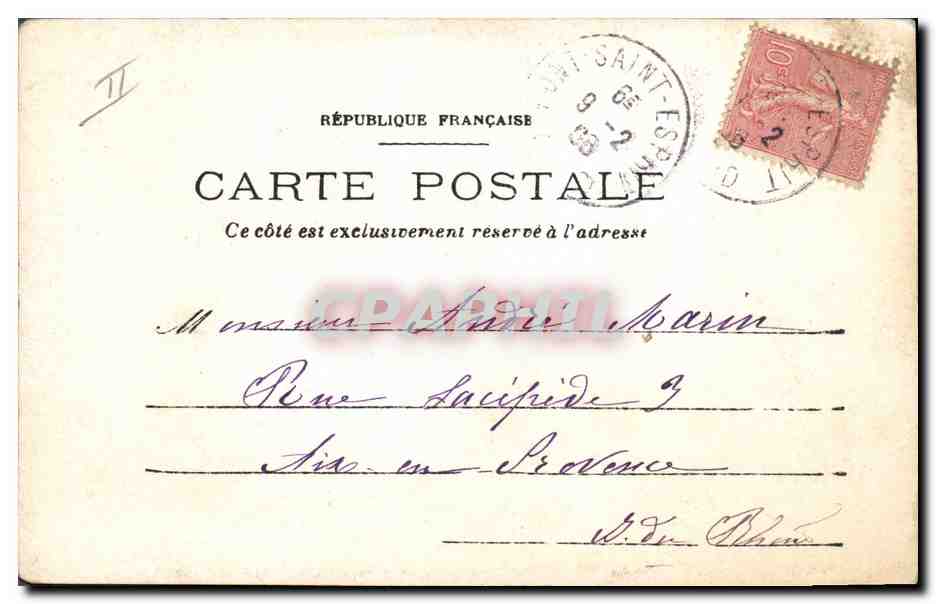 II
PONT-SAINT-ESPRIT
6E
9 -2
06
10
RÉPUBLIQUE FRANÇAISE
CARTE POSTALE
Ce côté est exclusivement réservé à l'adresse
CPAPHIL
Monsieur André Marin
Rue Lacépède 3
Aix-en-Provence
B. du Rhône